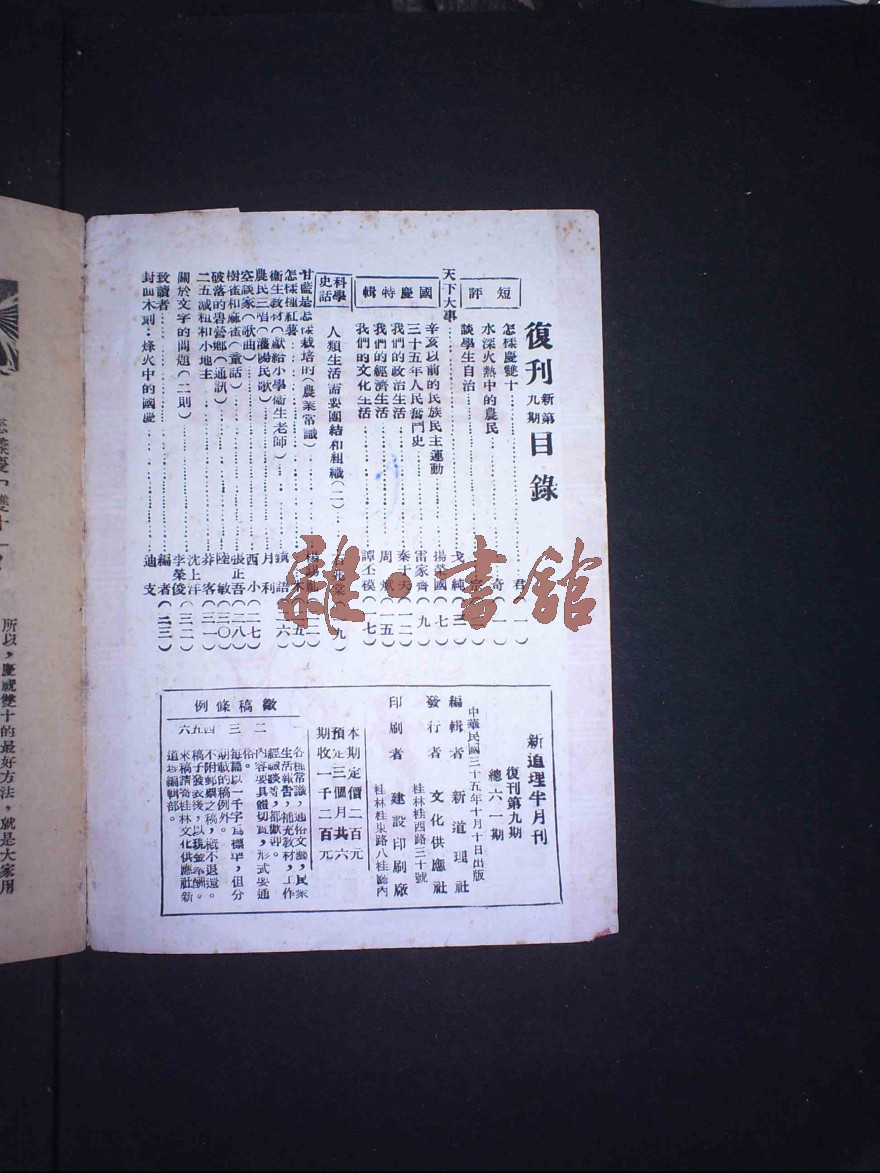 復刊 新第九期 目錄
短評
怎樣慶雙十 君（一）
水深火熱中的農民 奇（一）
談學生自治 宗
天下大事 戈純（三）
國慶特輯
辛亥以前的民族民主運動 楊榮國（七）
三十五年人民奮鬥史 雷家齊（九）
我們的政治生活 秦于天（一二）
我們的經濟生活 周（一五）
我們的文化生活 譚丕模（一七）
科學史話
人類生活需要團結和組織（二） 石兆棠（一九）
甘藍是怎樣栽培的（農業常識）
怎樣種紅薯
衛生教材（獻給小學衛生老師） 語（二六）
農民三唱（瀋陽民歌） 月利
空談家（歌曲） 西小（二七）
樹雀和麻雀（童話） 張正吾（二八）
破落的碧營鄉（通訊） 陸敏（三〇）
二五減租和小地主 莽客（三一）
關於文字的問題（二則） 沈上洋 李榮俊（三二）
致讀者 編者（三三）
封面木刻：烽火中的國慶 迪支
新道理半月刊
復刊第九期
總六一期
中華民國三十五年十月十日出版
編輯者 新道理社
發行者 文化供應社
桂林桂西路三十號
印刷者 建設印刷廠
桂林桂東路八桂廳內
本期定價二百元
預定三個月共六期收一千二百元
徵稿條例
一 各種常識，通俗文藝，民眾生活報告，補充教材，工作經驗談等，都歡迎。
二 內容要具體切實，形式要通俗。
三 每篇以一千字為標準，但分期載的稿例外。
四 不附郵票之稿，概不退還。
五 稿子發表後，以現金奉酬。
六 來稿請寄桂林文化供應社新道理編輯部。
所以，慶祝雙十的最好方法，就是大家用
雜·書館